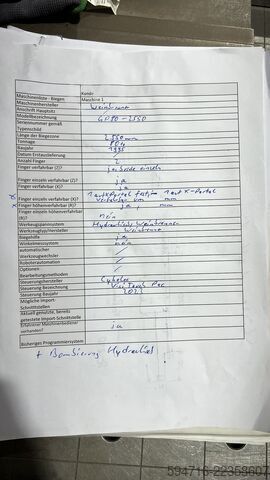 Kunde:
Maschinenliste - Biegen Maschine 1
Maschinenhersteller Weinbrenner
Anschrift Hauptsitz
Modellbezeichnung GP80-2550
Seriennummer gemäß
Typenschild
Länge der Biegezone 2550mm
Tonnage 80t
Baujahr 1995
Datum Erstauslieferung /
Anzahl Finger 2
Finger verfahrbar (Z)? ja, beide einzeln
Finger einzeln verfahrbar (Z)? ja
Finger verfahrbar (X)? ja
Finger einzeln verfahrbar (X)?
Finger höhenverfahrbar (R)? ja
Finger einzeln höhenverfahrbar
(R)? nein
Werkzeugspannsystem Hydraulisch Weinbrenner
Werkzeugtyphersteller Weinbrenner
Biegehilfe ja
Winkelmesssystem nein
automatischer
Werkzeugwechsler /
Roboterautomation /
Optionen /
Bearbeitungsmethoden
Steuerungshersteller Cybelec
Steuerung Bezeichnung
Steuerung Baujahr 2021
Mögliche Import-
Schnittstellen
Aktuell genutzte, bereits
getestete Import-Schnittstelle
Erfahrener Maschinenbediener
vorhanden? ja
Bisheriges Programmiersystem
+ Bombierung Hydraulisch
594716-22353607